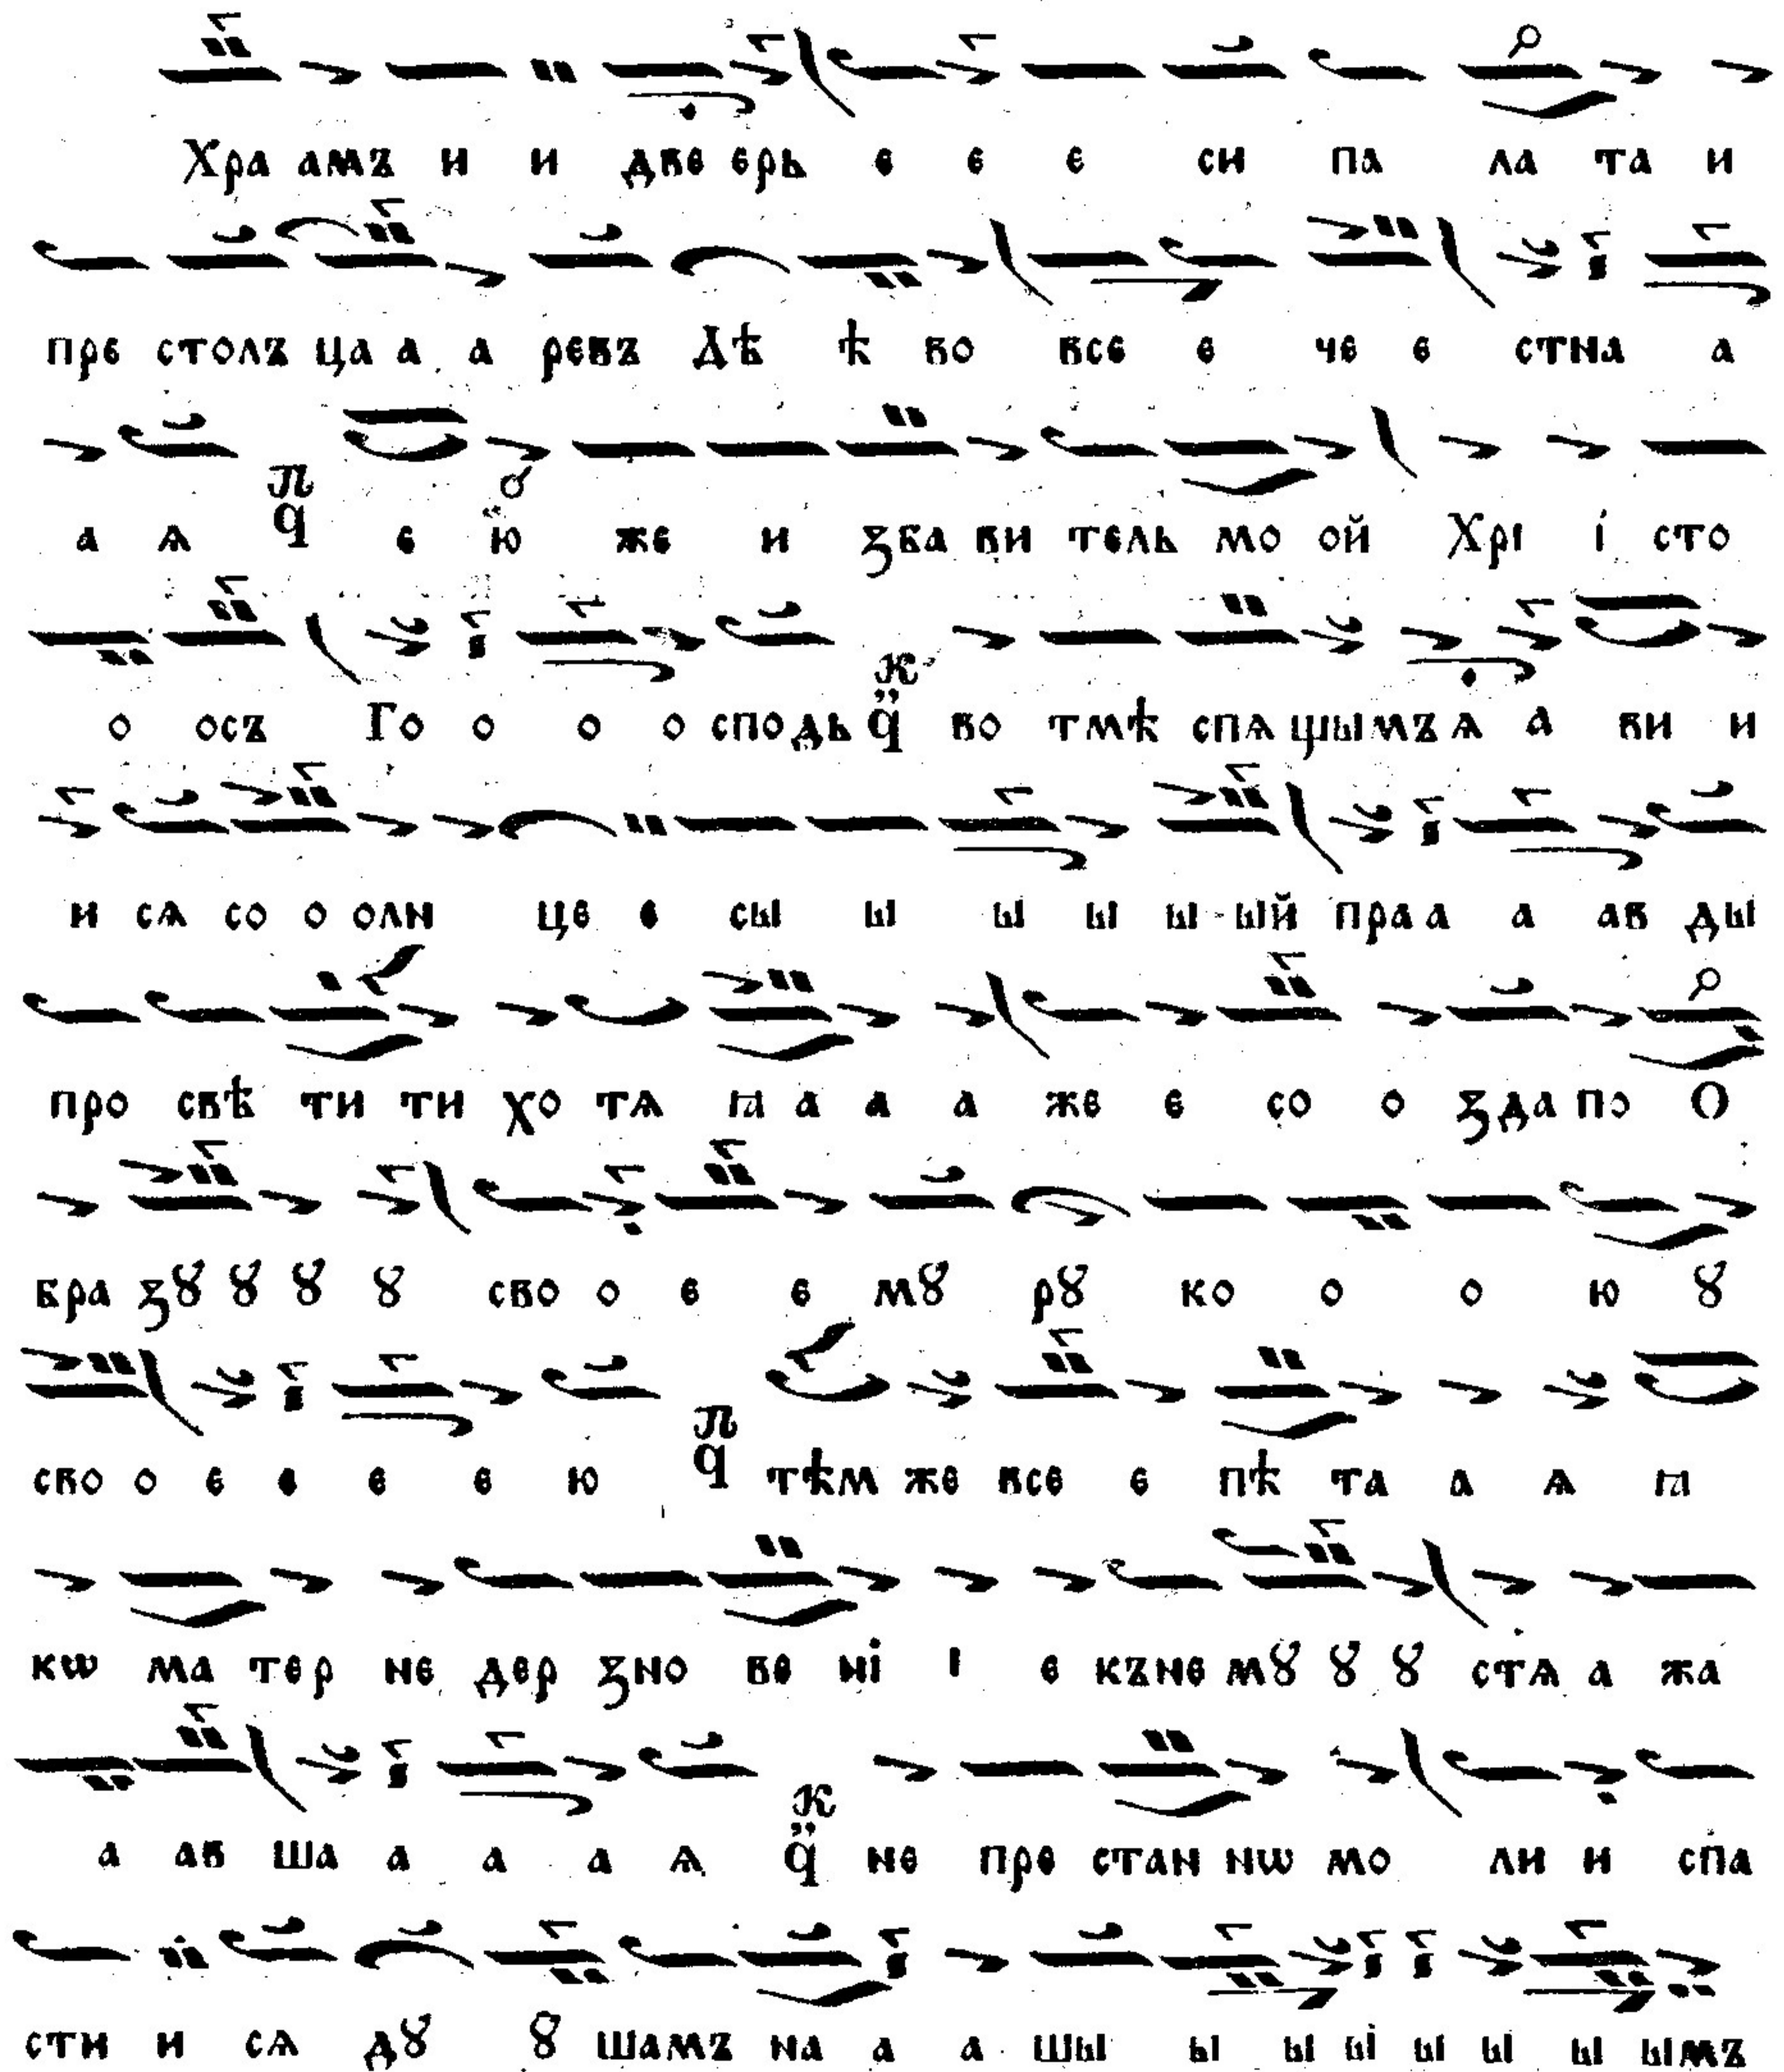 Хра амъ и и две ерь е е е си па ла та и
пре столъ ца а а ревъ Дѣ ѣ во все е че е стна а
а ѧ п҃ q е ю же и ꙁба ви тель мо ой Хрі і сто
о осъ Го о о о сподь к q̈ во тмѣ спѧ щымъ ѧ а ви и
и сѧ со о олн це е сы ы ы ы ы ый пра а а ав ды
про свѣ ти ти хо тѧ ꙗ а а а же е со о ꙁда по О
бра ꙁꙋ ꙋ ꙋ ꙋ сво о е е мꙋ рꙋ ко о о ю ꙋ
сво о е е е е ю п q тѣм же все е пѣ та а ѧ ꙗ
кѡ ма тер не дер ꙁно ве ні і е къ не мꙋ ꙋ ꙋ стѧ а жа
а ав ша а а а ѧ к q̈ не пре стан нѡ мо ли и спа
сти и сѧ дꙋ ꙋ шамъ на а а шы ы ы ы ы ы ы ымъ